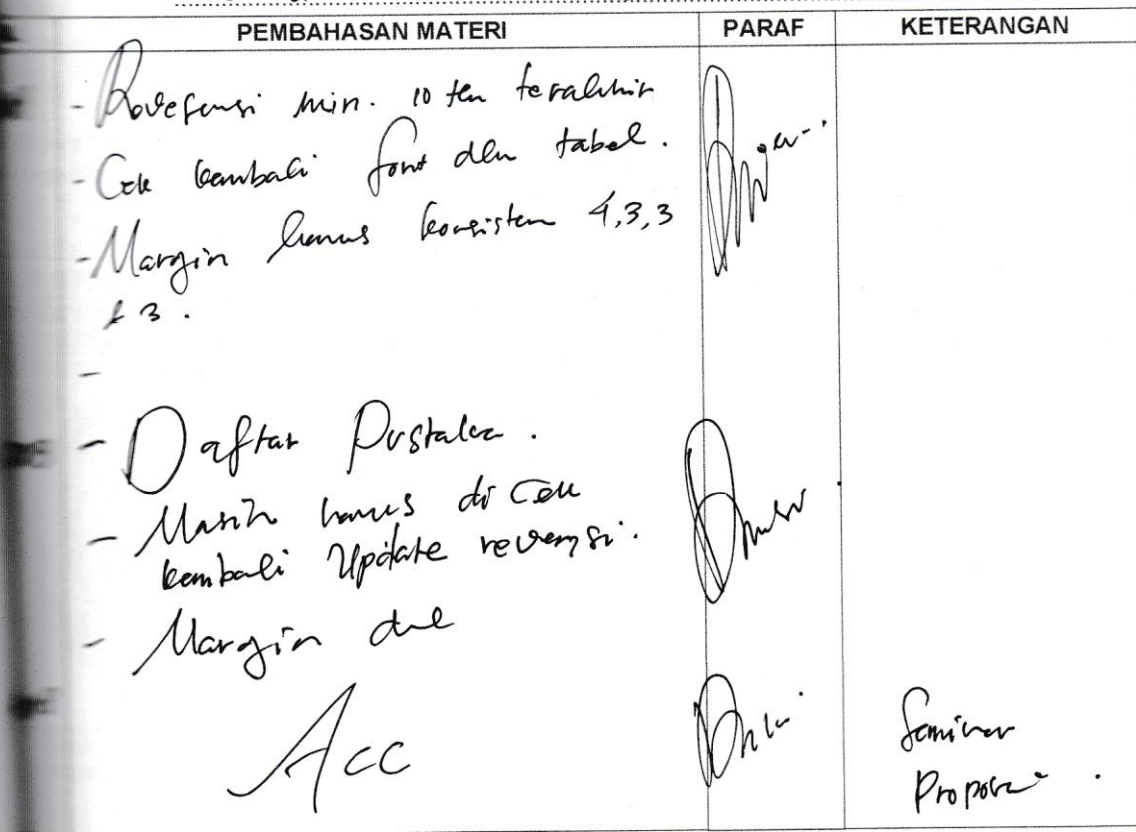 PEMBAHASAN MATERI PARAF KETERANGAN
- Reverensi min. 10 thn terakhir
- Cek kembali font dln tabel.
- Margin harus konsisten 4,3,3
& 3.
-
- Daftar Pustaka.
- Masih harus di cek
kembali Update reverensi.
- Margin dll
Acc
Seminar
Proposal